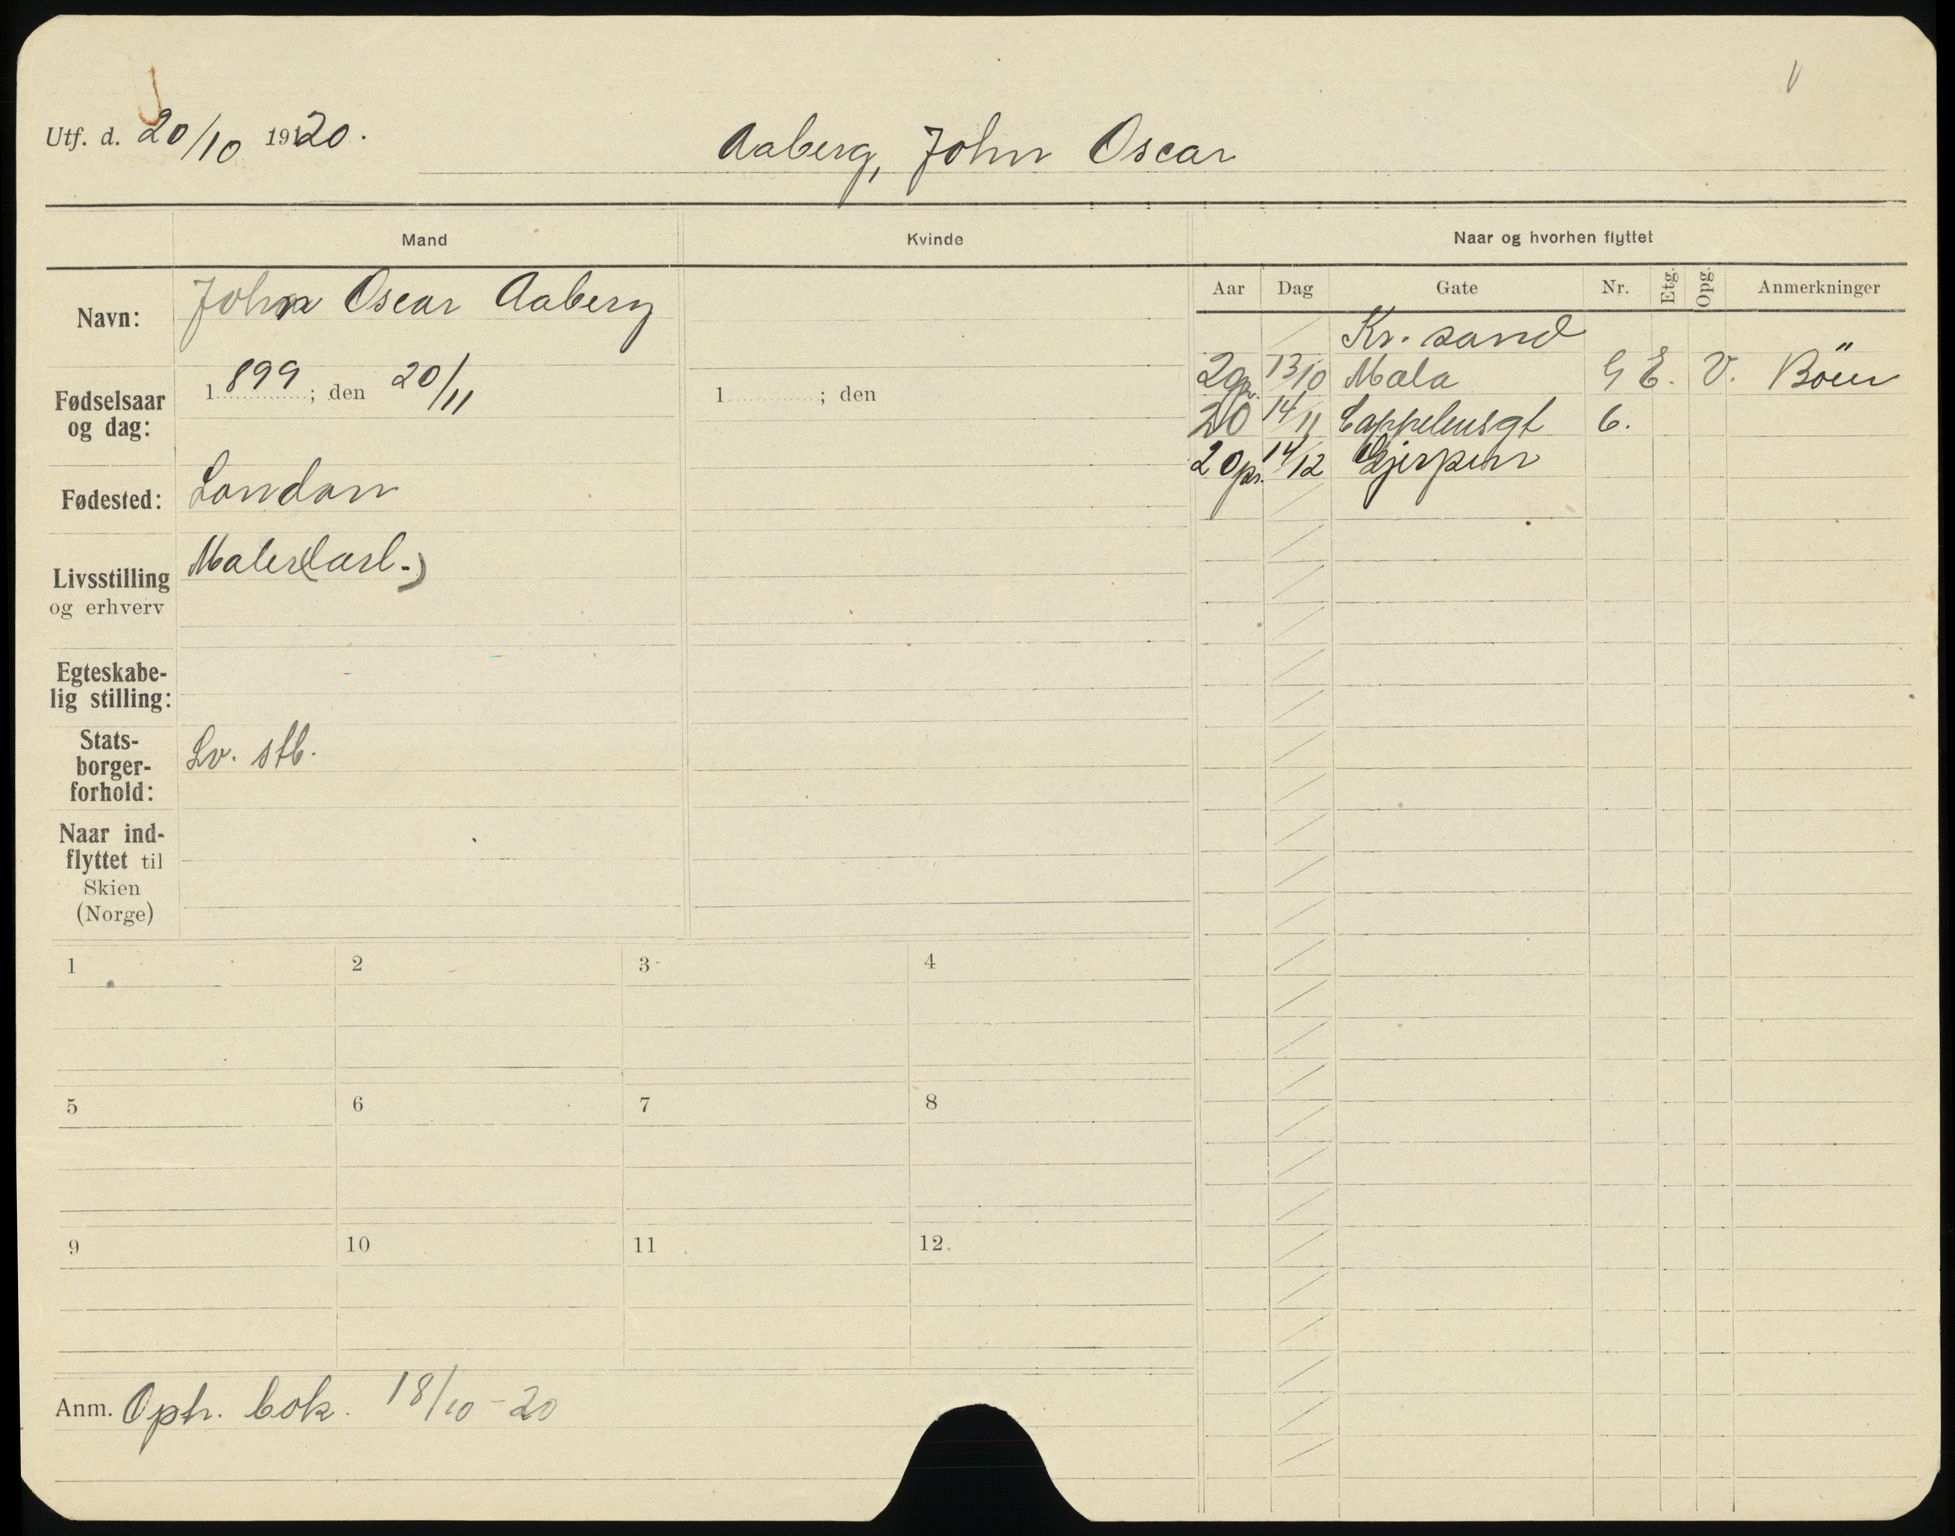 Utf. d. 20/10 1920.
Aaberg, John Oscar
Mand
Kvinde
Naar og hvorhen flyttet
Aar Dag Gate Nr. Etg. Opg. Anmerkninger
Navn: John Oscar Aaberg
Fødselsaar og dag: 1899; den 20/11
1 ; den
Fødested: London
Livsstilling og erhverv
Maler
Egteskabe-
lig stilling:
Stats-
borger-
forhold:
Sv. stb.
Naar ind-
flyttet til
Skien
(Norge)
Kr. sand
20 13/10 Mæla G E. V. Böer
20 14/11 Cappelensgt 6.
20 14/12 Gjerpen
1 2 3 4
5 6 7 8
9 10 11 12.
Anm. Oph. bok. 18/10-20